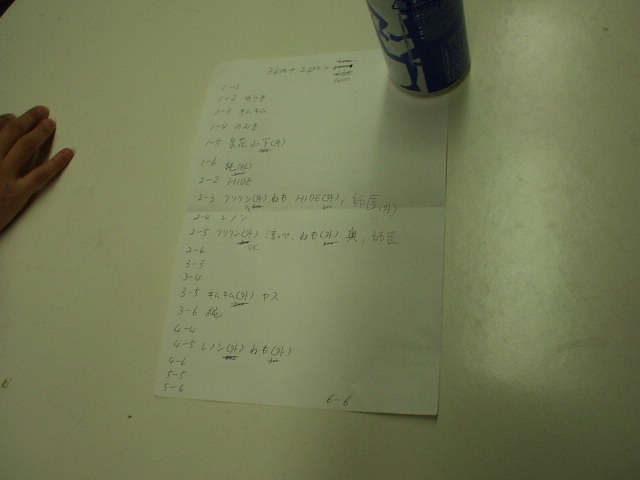 1-1
1-2 ゆうき
1-3 キムキム
1-4 のんき
1-5 京花 山下(外)
1-6 純(外)
2-2 HIDE
2-3 クリリン(外), ねも, HIDE(外), 師匠(外)
2-4 レノン
2-5 クリリン(外) ねも(外) 奥, 師匠
OK
2-6
3-3
3-4
3-5 キムキム(外) ヤス
3-6 純
4-4
4-5 レノン(外) ねも(外)
4-6
5-5
5-6
6-6